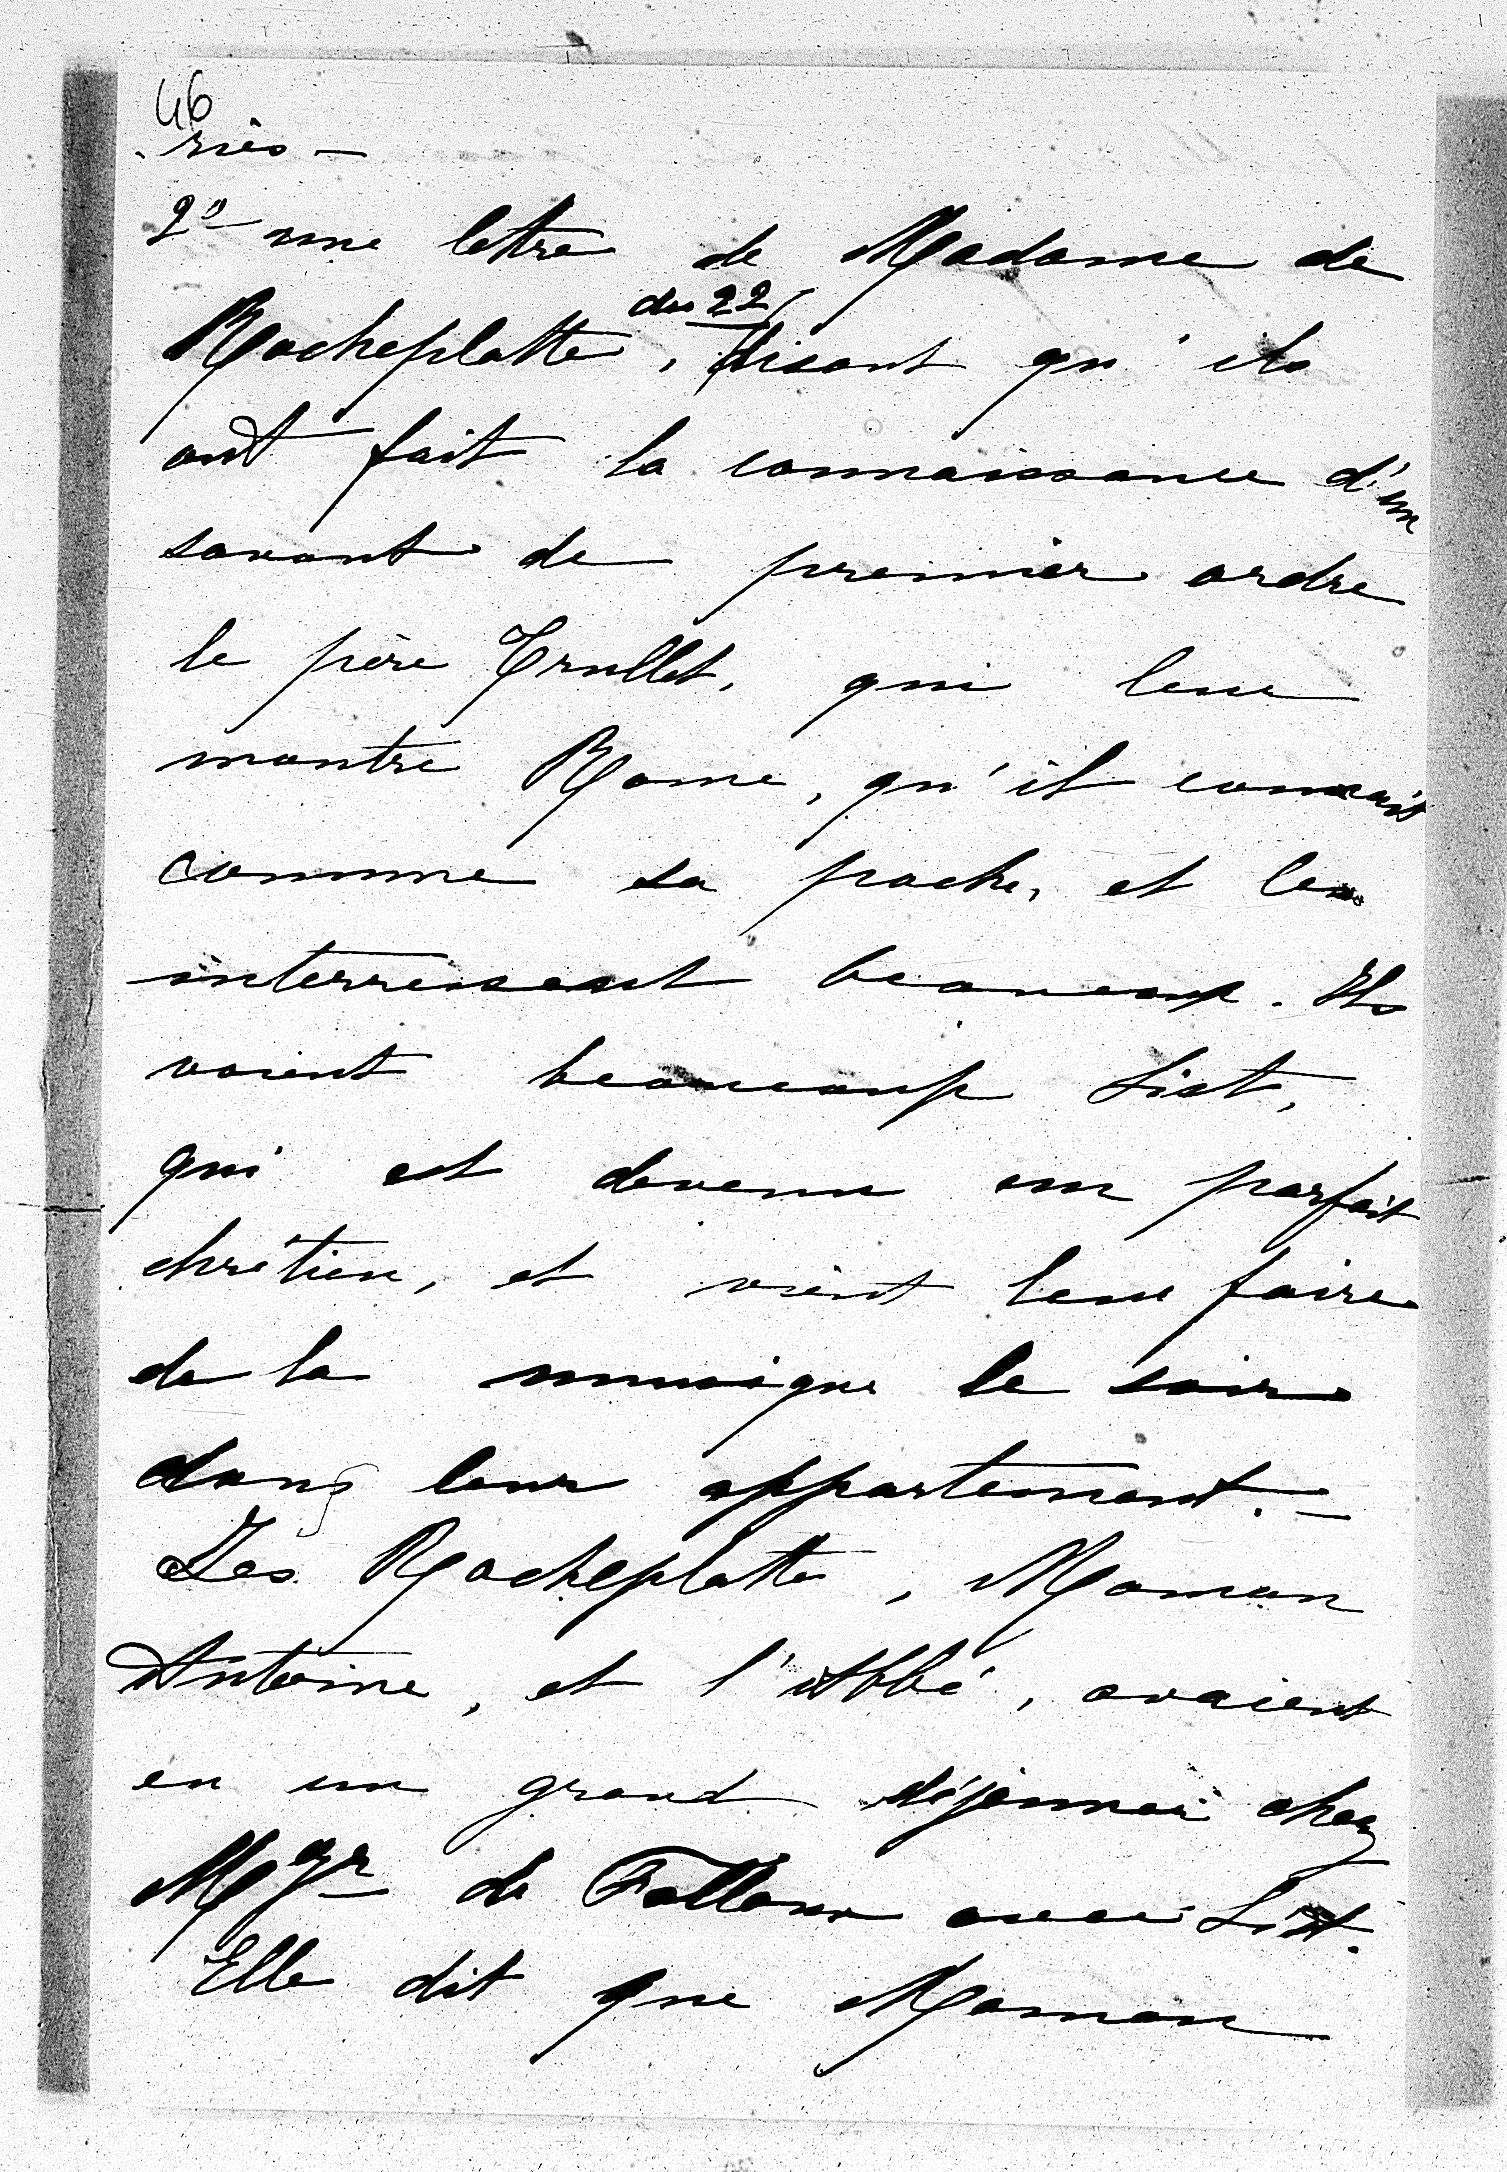 46
riés —
2° une lettre de Madame de
du 22
Rocheplatte, disant qu'ils
ont fait la connaissance d'un
savant de premier ordre
le père Trullet, qui leur
montre Rome, qu'il connait
comme sa poche, et les
interressant beaucoup. Ils
voient beaucoup List,
qui est devenu un parfait
chrétien, et vient leur faire
de la musique le soir
dans leur appartement. —
Les Rocheplatte, Maman
Antoine, et l'Abbé, avaient
eu un grand déjeuner chez
Mgr de Falloux avec List.
Elle dit que Maman